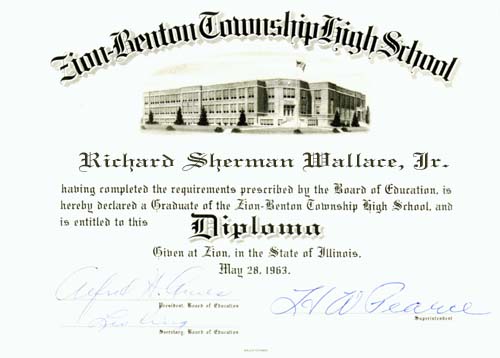 Zion-Benton Township High School
Richard Sherman Wallace, Jr.
having completed the requirements prescribed by the Board of Education, is
hereby declared a Graduate of the Zion-Benton Township High School, and
is entitled to this Diploma
Given at Zion, in the State of Illinois.
May 28, 1963.
Alfred H.
President, Board of Education
H W Pearce
Superintendent
Secretary, Board of Education